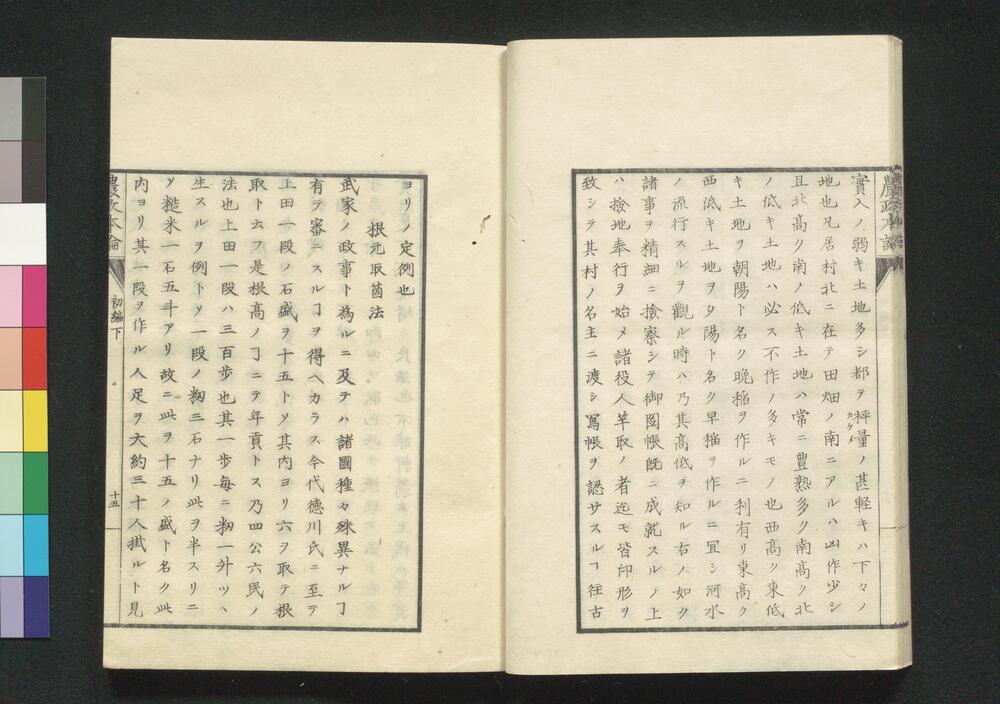 實入ノ弱キ土地多シ都テ秤量ノ甚軽キハ下々ノ
カケメ
地也凡居村北ニ在テ田畑ノ南ニアルハ凶作少シ
且北高ク南ノ低キ土地ハ常ニ豊熟多ク南高ク北
ノ低キ土地ハ必ス不作ノ多キモノ也西高ク東低
キ土地ヲ朝陽ト名ク晩稲ヲ作ルニ利有リ東高ク
西低キ土地ヲ夕陽ト名ク早稲ヲ作ルニ冝シ河水
ノ流行スルヲ觀ル時ハ乃其髙低ヲ知ル右ノ如ク
諸事ヲ精細ニ撿察シテ御圖帳既ニ成就スルノ上
ハ撿地奉行ヲ始メ諸役人竿取ノ者迄モ皆印形ヲ
致シテ其村ノ名主ニ渡シ寫帳ヲ認サスルヿ往古
ヨリノ定例也
根元取箇法
武家ノ政事ト為ルニ及テハ諸國種々殊異ナルヿ
有テ審ニスルヿヲ得ヘカラス今代德川氏ニ至テ
上田一段ノ石盛ヲ十五トシ其内ヨリ六ヲ取テ根
取ト云フ是根髙ノヿニテ年貢トス乃四公六民ノ
法也上田一段ハ三百歩也其一歩每ニ籾一升ツヽ
生スルヲ例トシ一段ノ籾三石ナリ此ヲ半スリニ
シ糙米一石五斗アリ故ニ此ヲ十五ノ盛ト名ク此
内ヨリ其一段ヲ作ル人足ヲ大約三十人掛ルト見
農政本論
初編下
十五